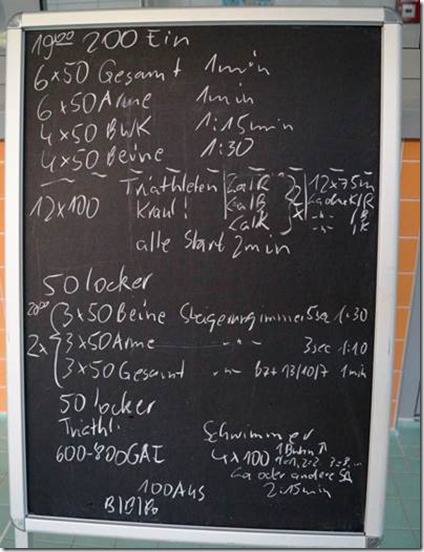 19⁰⁰ 200 Ein
6x50 Gesamt 1min
6x50 Arme 1min
4x50 BWK 1:15min
4x50 Beine 1:30
12x100 Triathleten
Kraul!
La/R
La/B
La/K
2x
12x75m
La ohne K/R
-"- /B
-"- /K
alle Start 2min
50 locker
20⁰⁰
2x
3x50 Beine Steigerung immer 5sec 1:30
3x50 Arme -"- 3sec 1:10
3x50 Gesamt -"- bzw 13/10/7 1min
50 locker
Triathl.
600-800GAI
Schwimmer
4x100 1 Bahn
1=1, 2=2, 3=
La oder andere SA
2:15min
100 Aus
B/B/